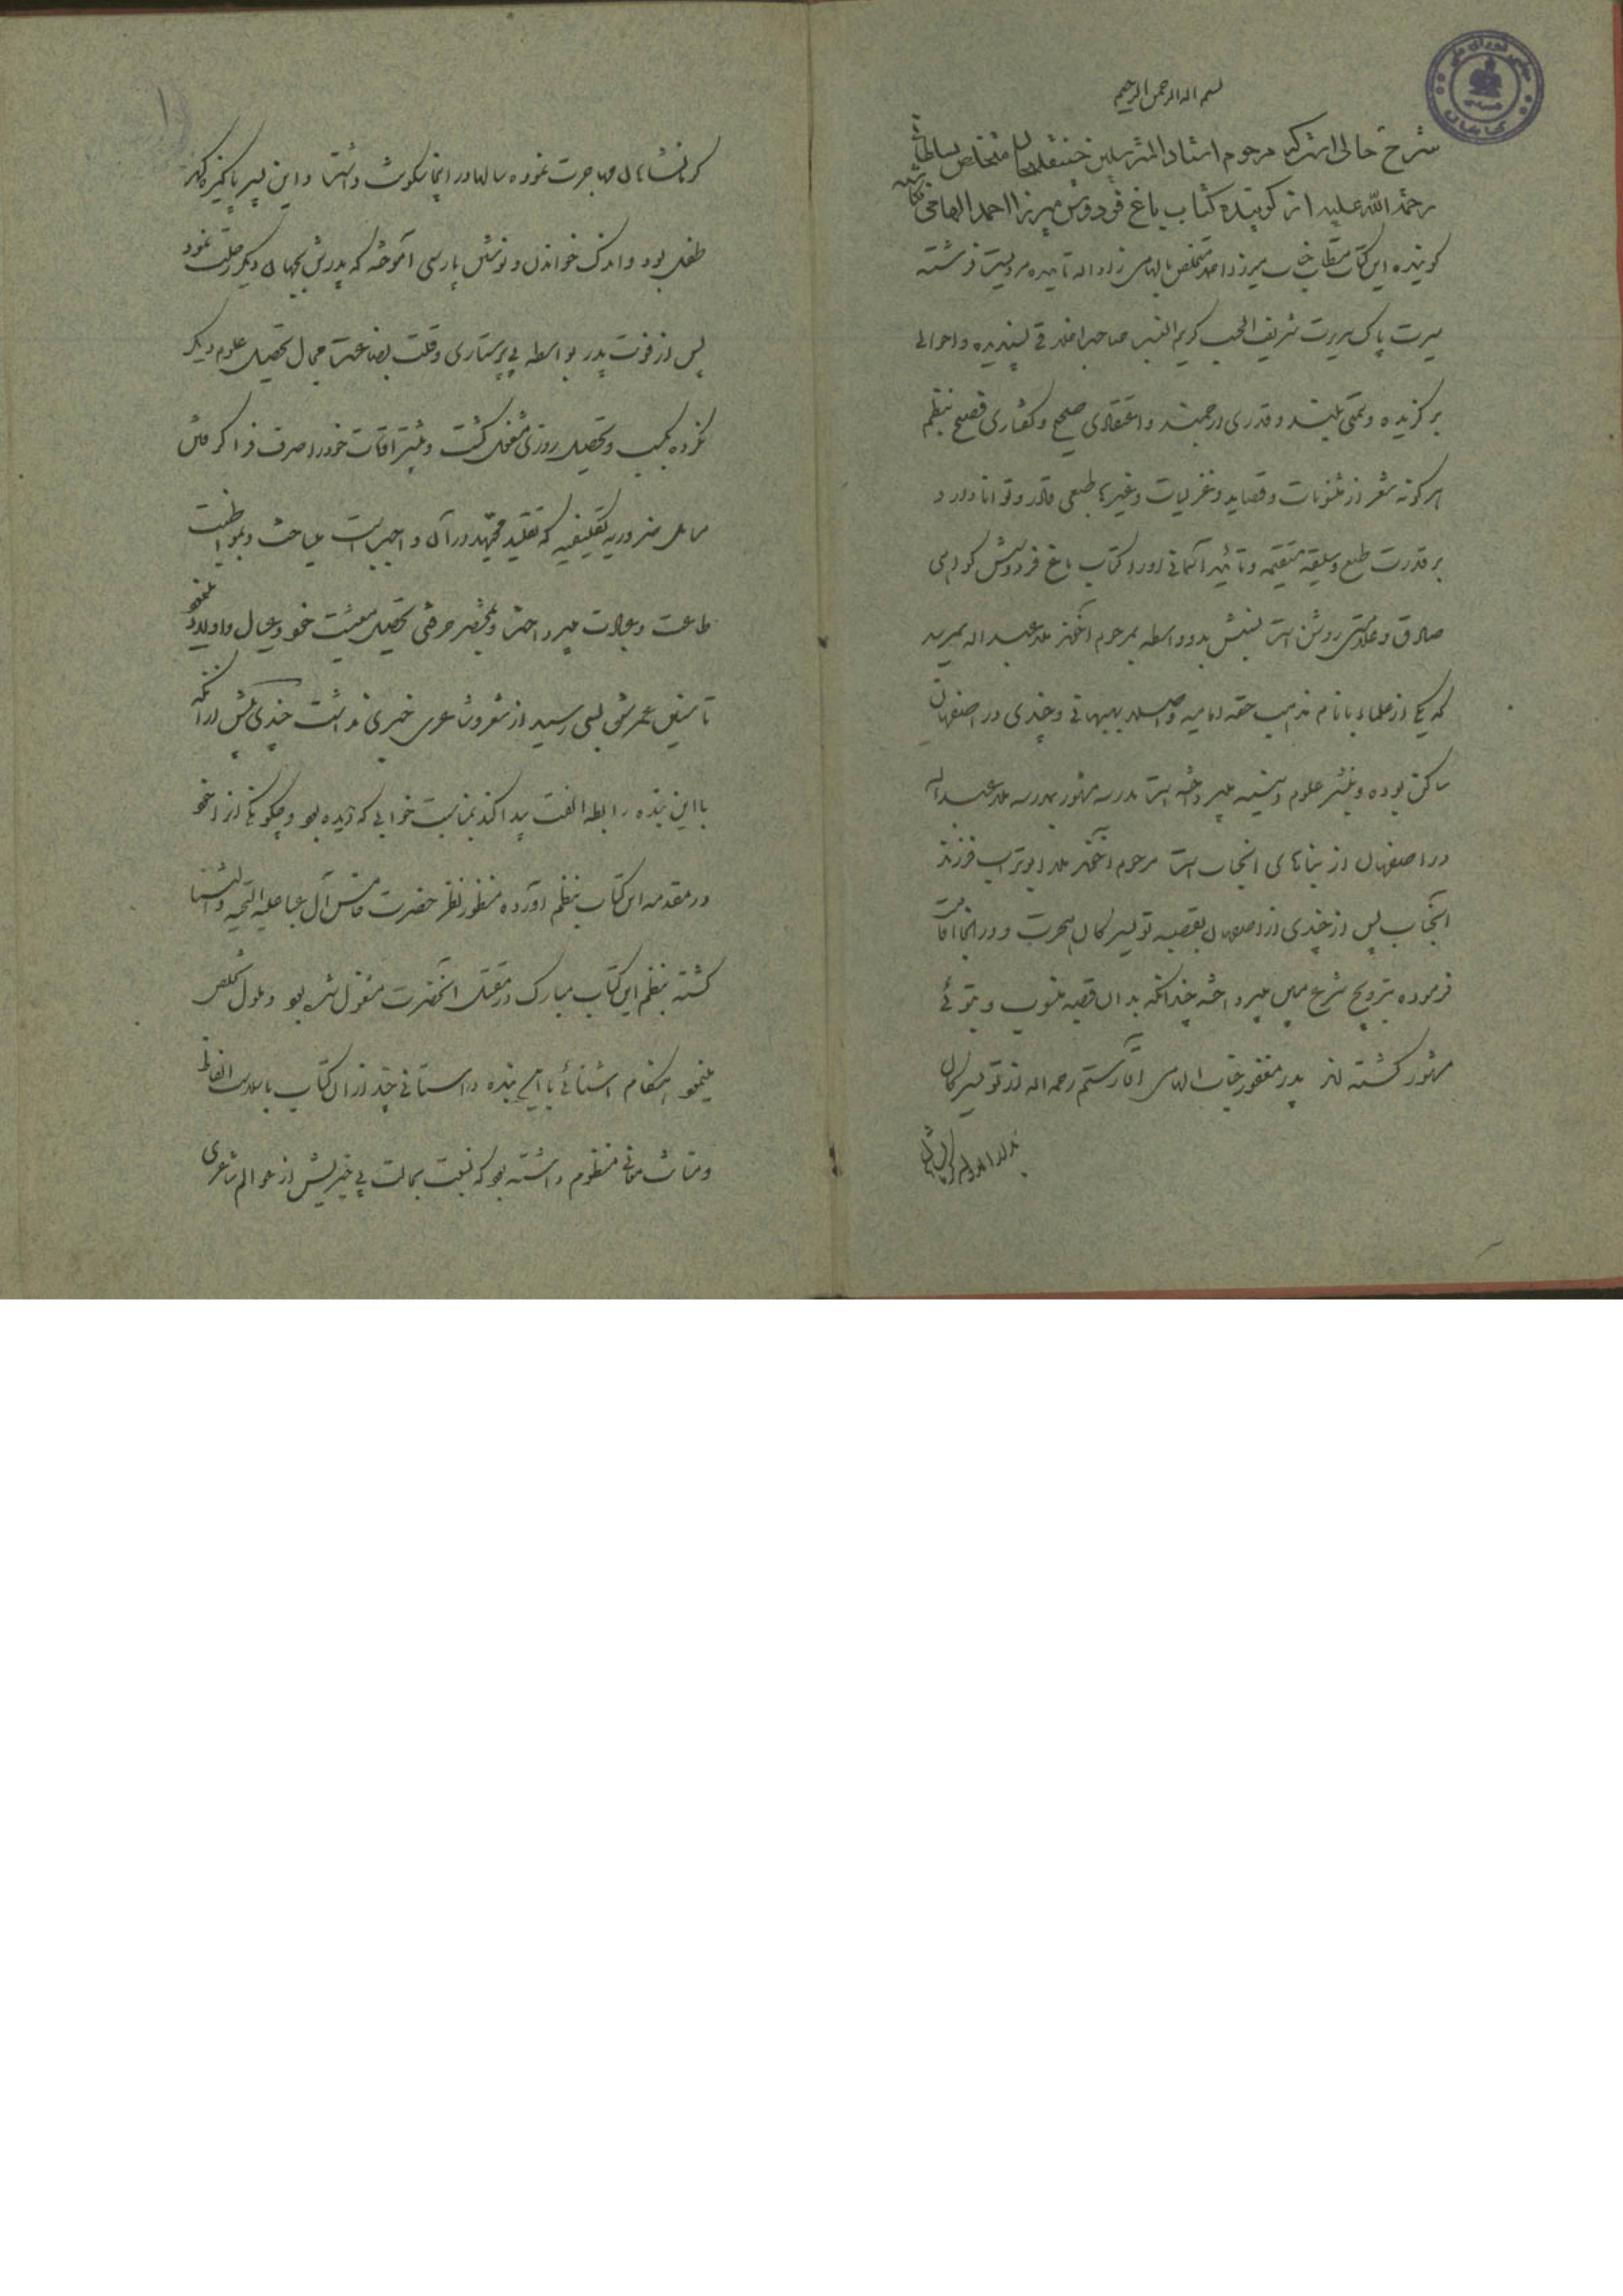 بسم الله الرحمن الرحیم
شرح حالی است که مرحوم استاد المترسلین حسینقلیخان متخلص بسلطانی
رحمة الله علیه از گوینده کتاب باغ فردوس میرزا احمد الهامی نگاشته
گوینده این کتاب مستطاب جناب میرزا احمد متخلص بالهامی زاد الله تأییده مردیست فرشته
سیرت پاک سریرت شریف الحسب کریم النسب صاحب اخلاقی پسندیده و احوالی
برگزیده و همتی بلند و قدری ارجمند و اعتقادی صحیح و گفتاری فصیح بنظم
هر گونه شعر از مثنویات و قصاید و غزلیات و غیرها طبعی قادر و توانا دارد و
بر قدرت طبع و سلیقه مستقیمه و تأئید آسمانی او را کتاب باغ فردوسش گواهی
صادق و علامتی روشن است نسبش بدو واسطه بمرحوم آخوند ملا عبدالله میرسد
که یکی از علماء بانام مذهب حقه امامیه و اصلا بهبهانی و چندی در اصفهان
ساکن بوده و بنشر علوم دینیه میپرداخته است مدرسه مشهور بمدرسه ملا عبدالله
در اصفهان از بناهای آنجناب است مرحوم آخوند ملا ابوتراب فرزند
آنجناب پس از چندی از اصفهان بقصبه تویسرکان هجرت و در آنجا اقامت
فرموده بترویج شرع مبین میپرداخته چندانکه بدان قصبه منسوب و بتوئی
مشهور گشته اند پدر مغفور جناب الهامی آقا رستم رحمه الله از تویسرکان
کرمانشاهان مهاجرت نموده سالها در اینجا سکونت داشته است و این پسر پاکیزه گهر
طفل بود و اندک خواندن و نوشتن پارسی آموخته که پدرش بجهان دیگر رحلت نمود
پس از فوت پدر بواسطه بی پرستاری و قلت بضاعت مجال تحصیل علوم دیگر
نکرده بکسب و تحصیل روزی مشغول گشت و بیشتر اوقات خود را صرف فرا گرفتن
مسائل ضروریه تکلیفیه که تقلید مجتهد در آن واجب است میساخت و بمواظبت
طاعت و عبادت میپرداخت و بمختصر حرفتی تحصیل معیشت خود و عیال و اولاد مینمود
تا سنین عمرش بسی رسید از شعر و شاعری خبری نداشت چندی پیش از آنکه
با این بنده رابطه الفت پیدا کند بمناسبت خوابی که دیده بود و چگونگی آنرا خود
در مقدمه این کتاب بنظم آورده منظور نظر حضرت خامس آل عبا علیه التحیه والثنا
گشته بنظم این کتاب مبارک در مقتل آنحضرت مشغول شده بود و ملول تخلص
مینمود هنگام آشنائی با این بنده داستانی چند از آن کتاب با سلاست الفاظ
و متانت معانی منظوم داشته بود که نسبت بحالت بی خبریش از عوالم شاعری